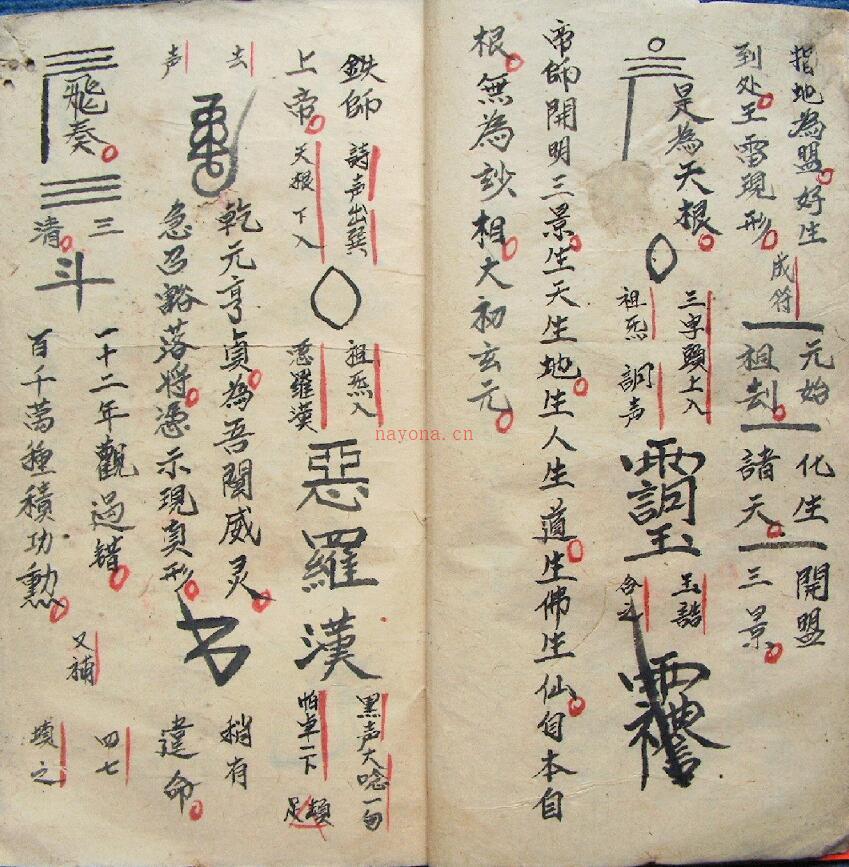 指地為盟好生
到处王雷現形
成符
元始
祖刦
化生
諸天
開盟
三景
是為天根
三字頭上入
祖炁
調声
玉誥
合之
帝師開明三景生天生地生人生道生佛生仙自本自
根無為玅相大初玄元
鉄師
上帝
詩声出巽
天根下入
祖炁入
惡羅漢
惡羅漢
黑声大唸一句
怕卓一下
足頓
去
声
乾元亨貞為吾闡威灵
急召豁落将憑示現真形
稍有
違命
飛奏
三
清
斗
一十二年觀過錯
百千萬種積功勲
又補
四七
填之
nayona.cn